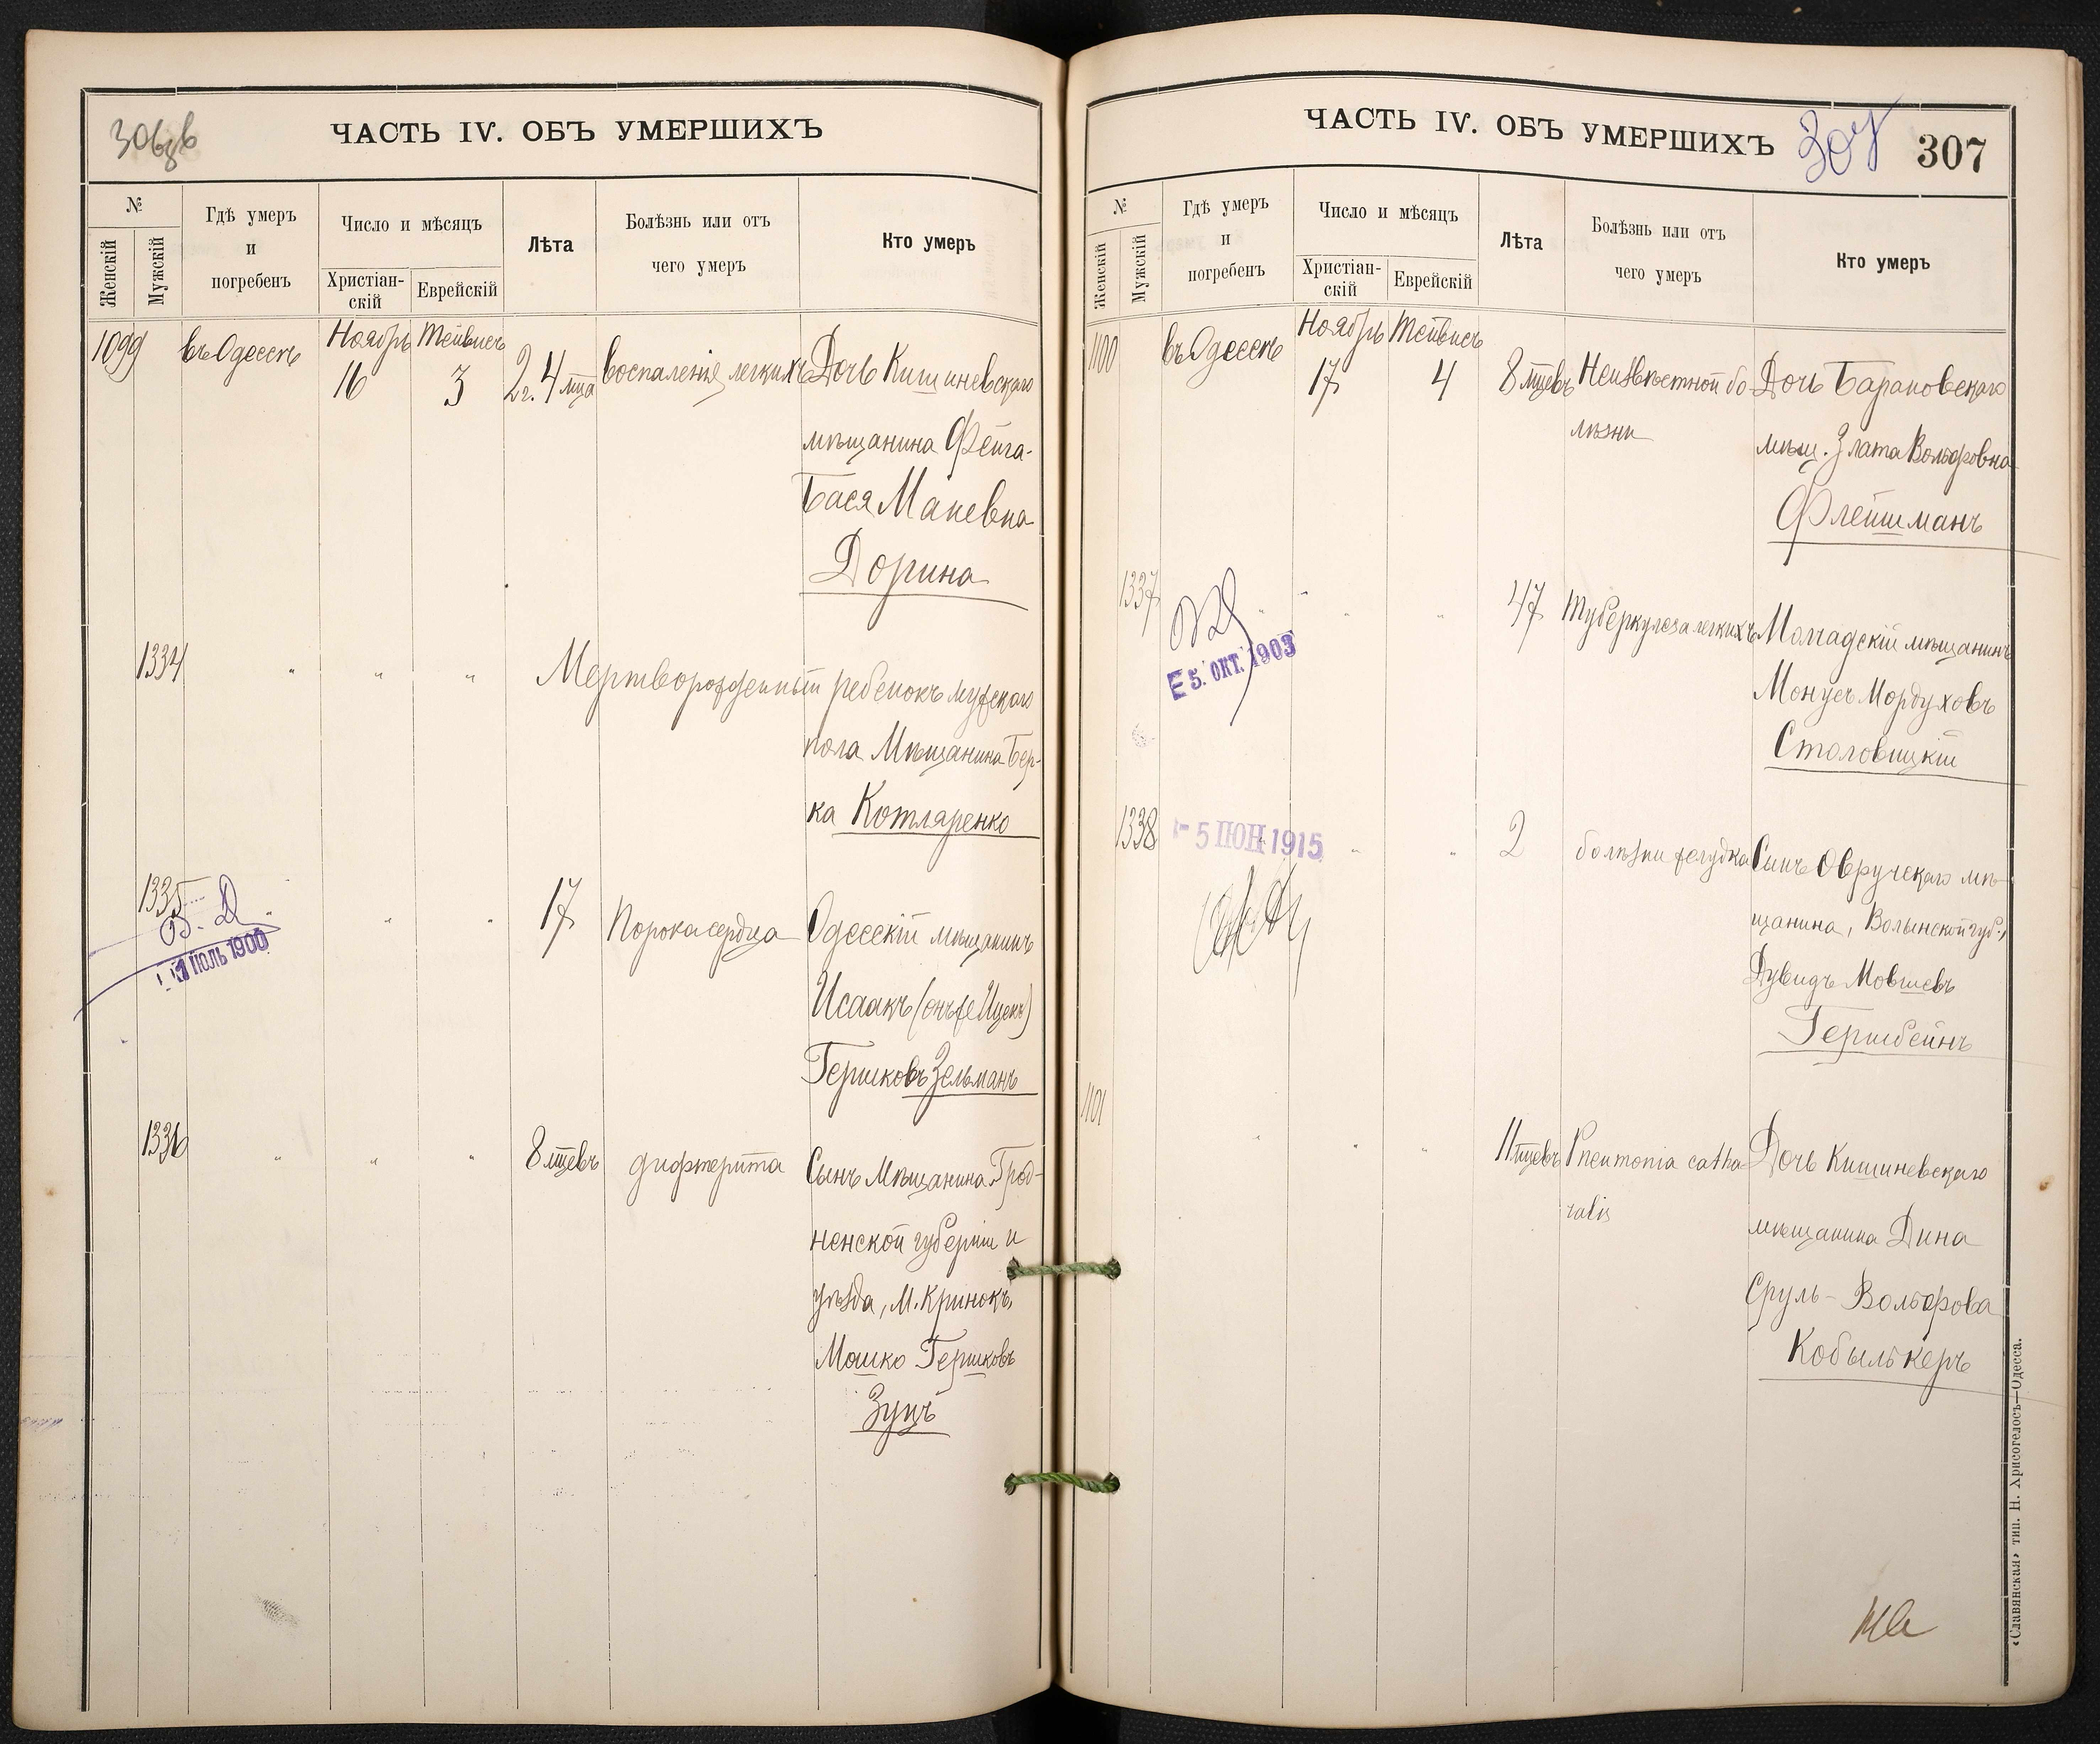 306 зв
ЧАСТЬ IV. ОБЪ УМЕРШИХЪ
№
Женскій
Мужскій
Гдѣ умеръ
и
погребенъ
Число и мѣсяцъ
Христіан-
скій
Еврейскій
Лѣта
Болѣзнь или отъ
чего умеръ
Кто умеръ
1099 въ Одессѣ Ноябрь Тейвисъ
16 3 2 г. 4 мца воспаленія легкихъ Дочь Кишиневскаго
мѣщанина Фейга-
Бася Маневна
Дорина
1334 " " " Мертворожденный ребенокъ мужскаго
пола Мѣщанина Бер-
ка Котляренко
1335 " " " 17 Порока сердца Одесскій мѣщанинъ
Исаакъ (онъ же Ицекъ)
Гершковъ Зельманъ
ІЮЛЬ 1900
1336 " " " 8 мцевъ дифтерита Сынъ Мѣщанина Грод-
ненской губерніи и
уѣзда, М. Кринокъ,
Мошко Гершковъ
Зуцъ
ЧАСТЬ IV. ОБЪ УМЕРШИХЪ
307
307
№
Женскій
Мужскій
Гдѣ умеръ
и
погребенъ
Число и мѣсяцъ
Христіан-
скій
Еврейскій
Лѣта
Болѣзнь или отъ
чего умеръ
Кто умеръ
1100 въ Одессѣ Ноябрь Тейвисъ
17 4 8 мцевъ Неизвѣстной бо- Дочь Барановскаго
лѣзни мѣщ. Злата Вольфовна
Флейшманъ
1337 " " " 47 Туберкулеза легкихъ Молчадскій мѣщанинъ
Монусъ Мордуховъ
Столовицкій
5. ОКТ. 1903
1338 " " " 2 болѣзни желудка Сынъ Овручскаго мѣ-
щанина, Волынской губ.,
Дувидъ Мовшевъ
Гершбейнъ
5 ІЮН 1915
1101 " " " 11 мцевъ Pneumonia catha Дочь Кишиневскаго
ralis мѣщанина Дина
Сруль-Вольфова
Кобылькеръ
«Славянская» тип. Н. Хрисогелосъ—Одесса.